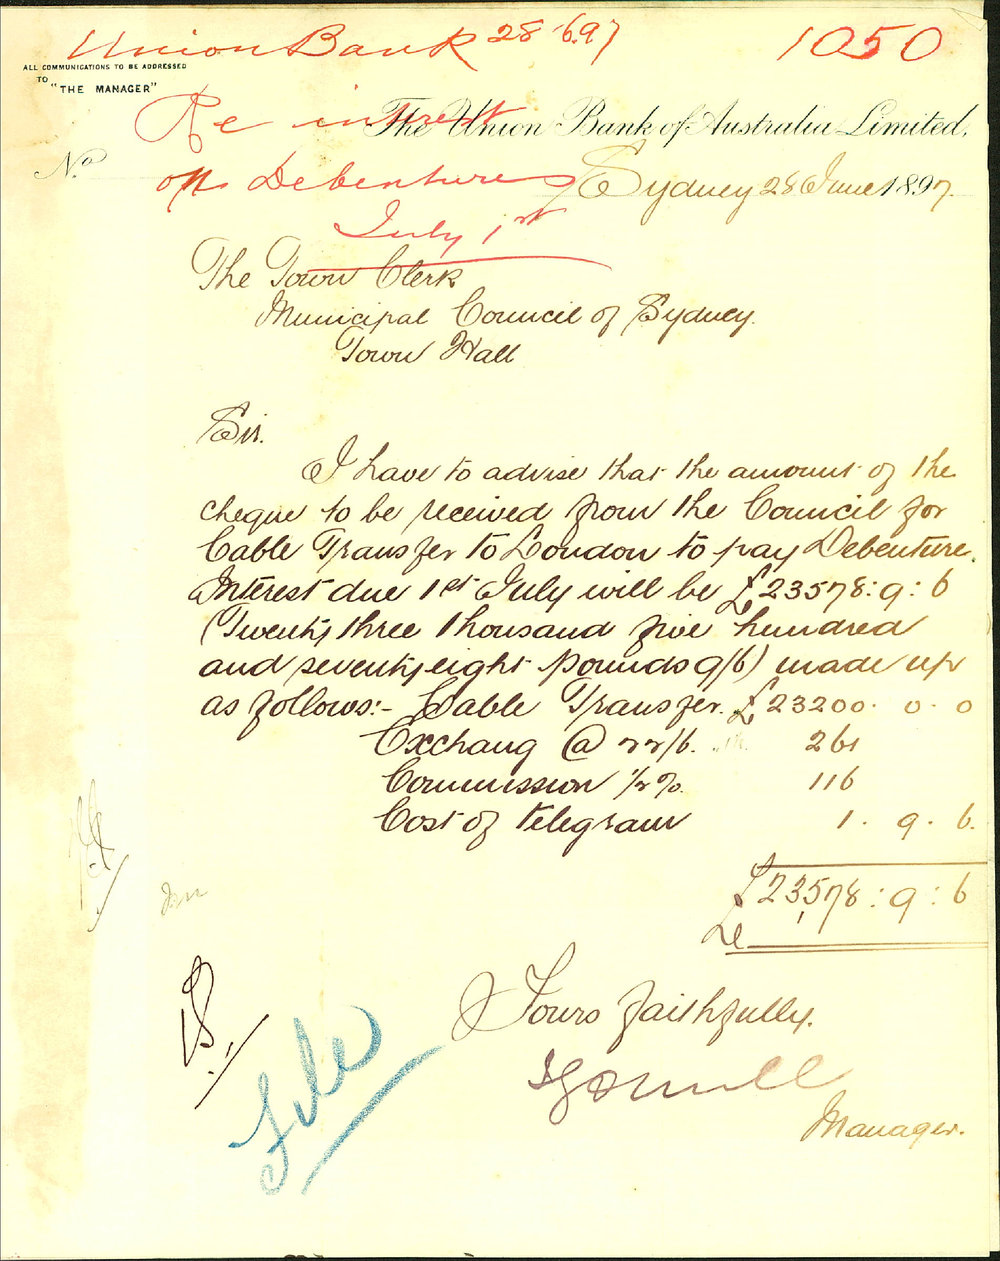 Union Bank 28.6.97
1050
ALL COMMUNICATIONS TO BE ADDRESSED
TO
"THE MANAGER"
Re interest
The Union Bank of Australia Limited,
No
on Debentures
Sydney 28 June 1897.
July 1st
The Town Clerk
Municipal Council of Sydney.
Town Hall
Sir.
I have to advise that the amount of the
cheque to be received from the Council for
Cable Transfer to London to pay Debenture
Interest due 1st July will be £23578:9:6
(Twenty three thousand five hundred
and seventy eight pounds 9/6) made up
as follows:- Cable Transfer. £23200. 0. 0
Exchang @ 22/6. 261
Commission ½%. 116
Cost of telegram 1. 9. 6.
£23,578:9:6
Yours faithfully.
Manager.
File